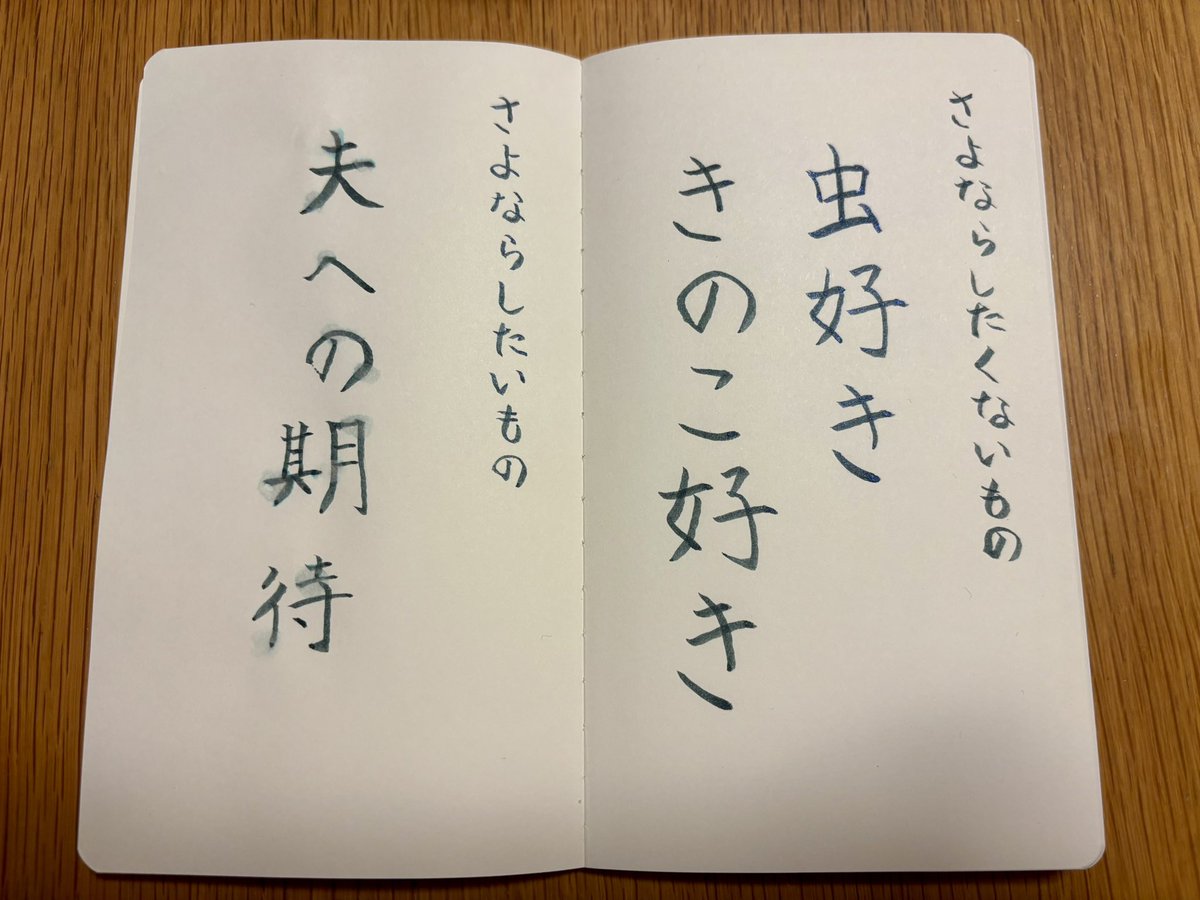 さよならしたくないもの
虫好き
きのこ好き
さよならしたいもの
夫への期待